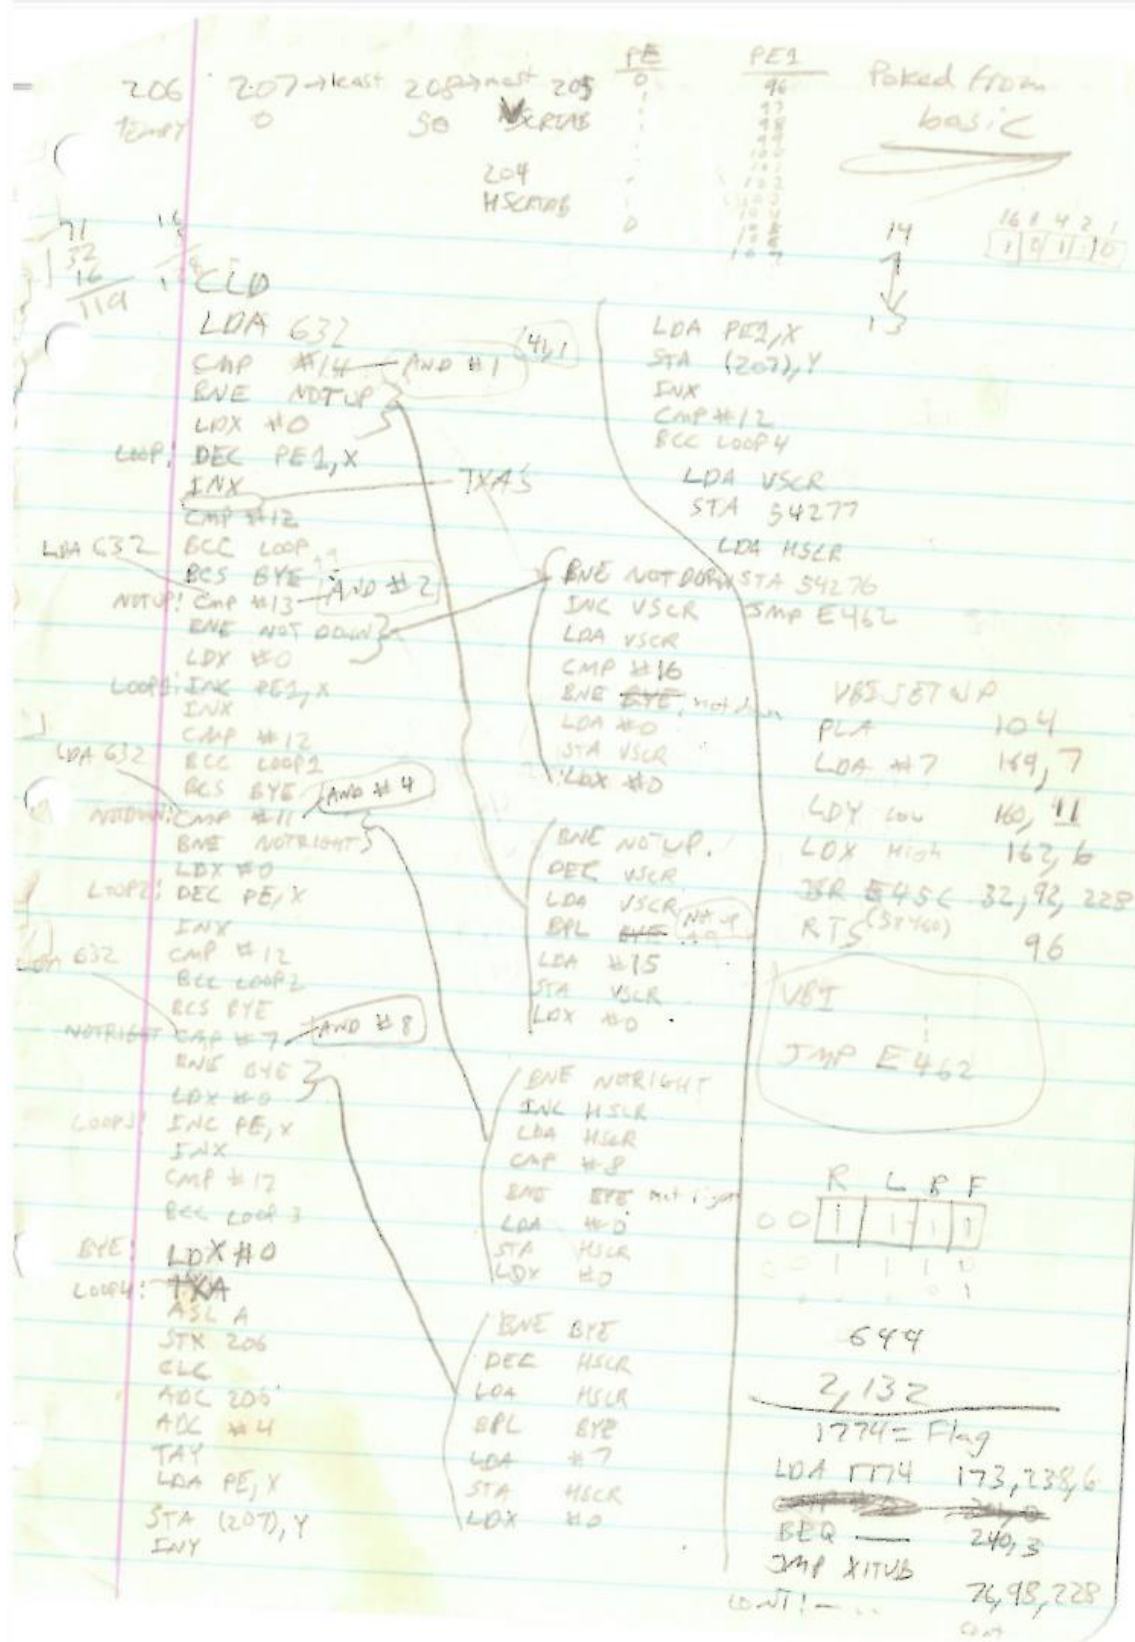 206 207→least 208→most 205
TEMPY 0 50 VSCRTAB
204
HSCRTAB
PE
0
0
PE1
96
97
98
99
100
101
102
107
Poked from
basic
14
13
16 8 4 2 1
1 0 1 1 0
71
32
16
119
CLD
LDA 632
CMP #14 — AND #1
BNE NOTUP
LDX #0
LOOP: DEC PE1,X
INX — TXA
CMP #12
LDA 632 BCC LOOP
BCS BYE
NOTUP: CMP #13 — AND #2
BNE NOT DOWN
LDX #0
LOOP1: INC PE1,X
INX
CMP #12
LDA 632 BCC LOOP1
BCS BYE
NOTDOWN: CMP #11 AND #4
BNE NOTRIGHT
LDX #0
LOOP2: DEC PE,X
INX
LDA 632 CMP #12
BCC LOOP2
BCS BYE
NOTRIGHT CMP #7 AND #8
BNE BYE
LDX #0
LOOP3: INC PE,X
INX
CMP #12
BCC LOOP 3
BYE: LDX #0
LOOP4: TXA
ASL A
STX 206
CLC
ADC 206
ADC #4
TAY
LDA PE,X
STA (207),Y
INY
LDA PE1,X
STA (207),Y
INX
CMP #12
BCC LOOP4
LDA VSCR
STA 54277
LDA HSCR
STA 54276
JMP E462
BNE NOTDOWN
INC VSCR
LDA VSCR
CMP #16
BNE BYE not down
LDA #0
STA VSCR
LDX #0
BNE NOTUP.
DEC VSCR
LDA VSCR
BPL BYE Not up
LDA #15
STA VSCR
LDX #0
BNE NOTRIGHT
INC HSCR
LDA HSCR
CMP #8
BNE BYE not right
LDA #0
STA HSCR
LDX #0
BNE BYE
DEC HSCR
LDA HSCR
BPL BYE
LDA #7
STA HSCR
LDX #0
VBI SETUP
PLA 104
LDA #7 169,7
LDY Low 160, 11
LDX High 162,6
JSR E45C 32,92,228
RTS (58460) 96
VBI
JMP E462
R L B F
0 0 1 1 1 1
0 0 1 1 1 0
644
2,132
1774= Flag
LDA 1774 173,238,6
BEQ — 240,3
JMP XITVB
76,98,228
CONT: — ..